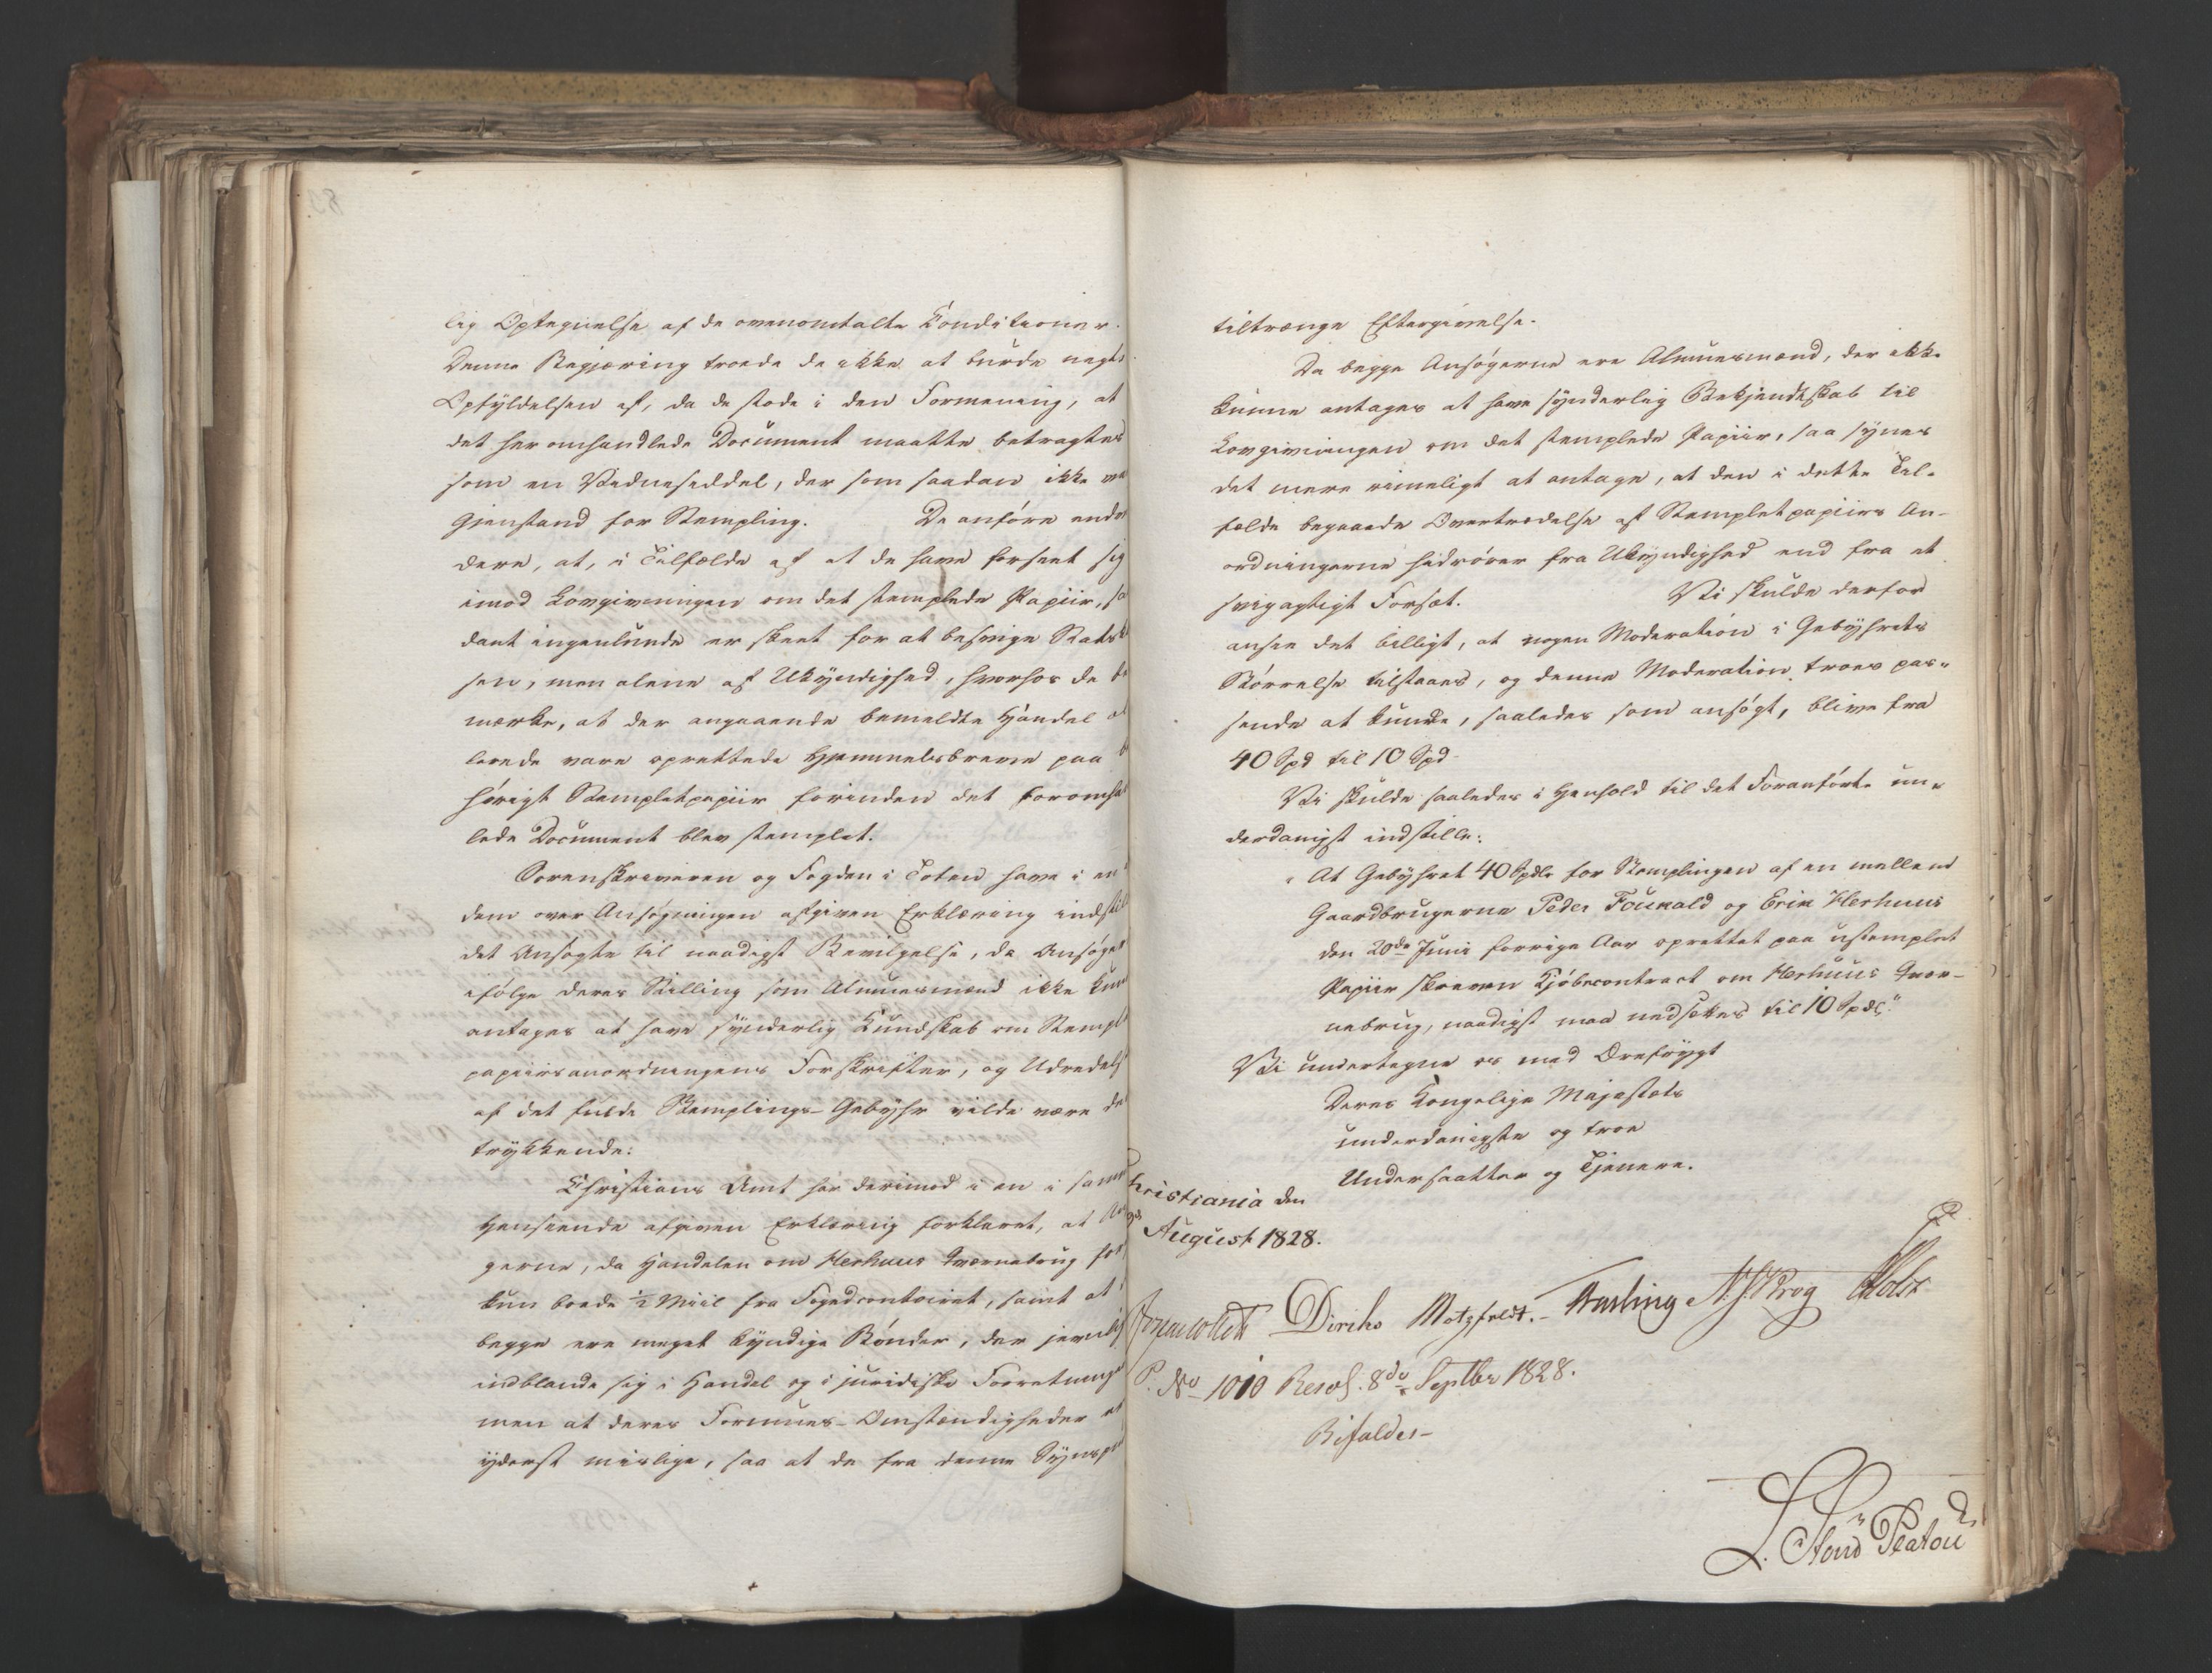 lig Optegnelse af de ovenomtalte Conditioner.
Denne Begjæring troede de ikke at burde negte
Opfyldelsen af, da de stode i den Formening, at
det heromhandlede Document maatte betragtes
som en Vidneseddel, der som saadan ikke var
Gjenstand for Stempling. De anføre endvi
dere, at, i Tilfælde af at de have forseet sig
imod Lovgivningen om det stemplede Papiir, saa
dant ingenlunde er skeet for at besvige Statskas
sen, men alene af Ukyndighed, hvorhos de be
mærke, at der angaaende bemeldte Handel al
lerede vare oprettede Hjemmelsbreve paa be
hørigt Stempletpapiir forinden det foromhand
lede Document blev stemplet.
Sorenskriveren og Fogden i Toten have i en
dem over Ansøgningen afgiven Erklæring indstillet
det Ansøgte til naadigst Bevilgelse, da Ansøgerne
ifølge deres Stilling som Almuesmænd ikke kunne
antages at have synderlig Kundskab om Stemplet
papiirsanordningens Forskrifter, og Udredelsen
af det fulde Stemplings-Gebyhr vilde være dem
trykkende:
Christians Amt har derimod i en i samme
Henseende afgiven Erklæring forklaret, at Ansø
gerne, da Handelen om Herhuus Qværnebrug
kun boede ½ Miil fra Fogedcontoiret, samt at
begge ere meget kyndige Bønder, der jevnlig
indblande sig i Handel og i juridiske Forretninger
men at deres Formues-Omstændigheder ere
yderst mislige, saa at de fra denne Synspunct
tiltrænge Eftergivelse.
Da begge Ansøgerne ere Almuesmænd, der ikke
kunne antages at have synderlig Bekjendtskab til
Lovgivningen om det stemplede Papiir, saa synes
det mere rimeligt at antage, at den i dette Til-
fælde begaaede Overtrædelse af Stempletpapiirs An-
ordningerne hidrører fra Ukyndighed end fra et
svigagtigt Forsæt. Vi skulde derfor
ansee det billigt, at nogen Moderation i Gebyhrets
Størrelse tilstaaes, og denne Moderation troes pas-
sende at kunne, saaledes som ansøgt, blive fra
40 Spd til 10 Spd.
Vi skulde saaledes i Henhold til det Foranførte un-
derdanigst indstille:
"At Gebyhret 40 Spdlr for Stemplingen af en mellem
Gaardbrugerne Peder Foukald og Erik Herhuus
den 20de Juni forrige Aar oprettet paa ustemplet
Papiir skreven Kjøbecontract om Herhuus Qvær-
nebrug, naadigst maa nedsættes til 10 Spdlr."
Vi undertegne os med Ærefrygt
Deres Kongelige Majestæts
underdanigste og troe
Undersaatter og Tjenere.
Christiania den
August 1828.
Collett Diriks Motzfeldt. Fasting N. J. Krog Holst
P. No 1010 Resol. 8de Septbr 1828.
Bifaldes
L. Stoud Platou